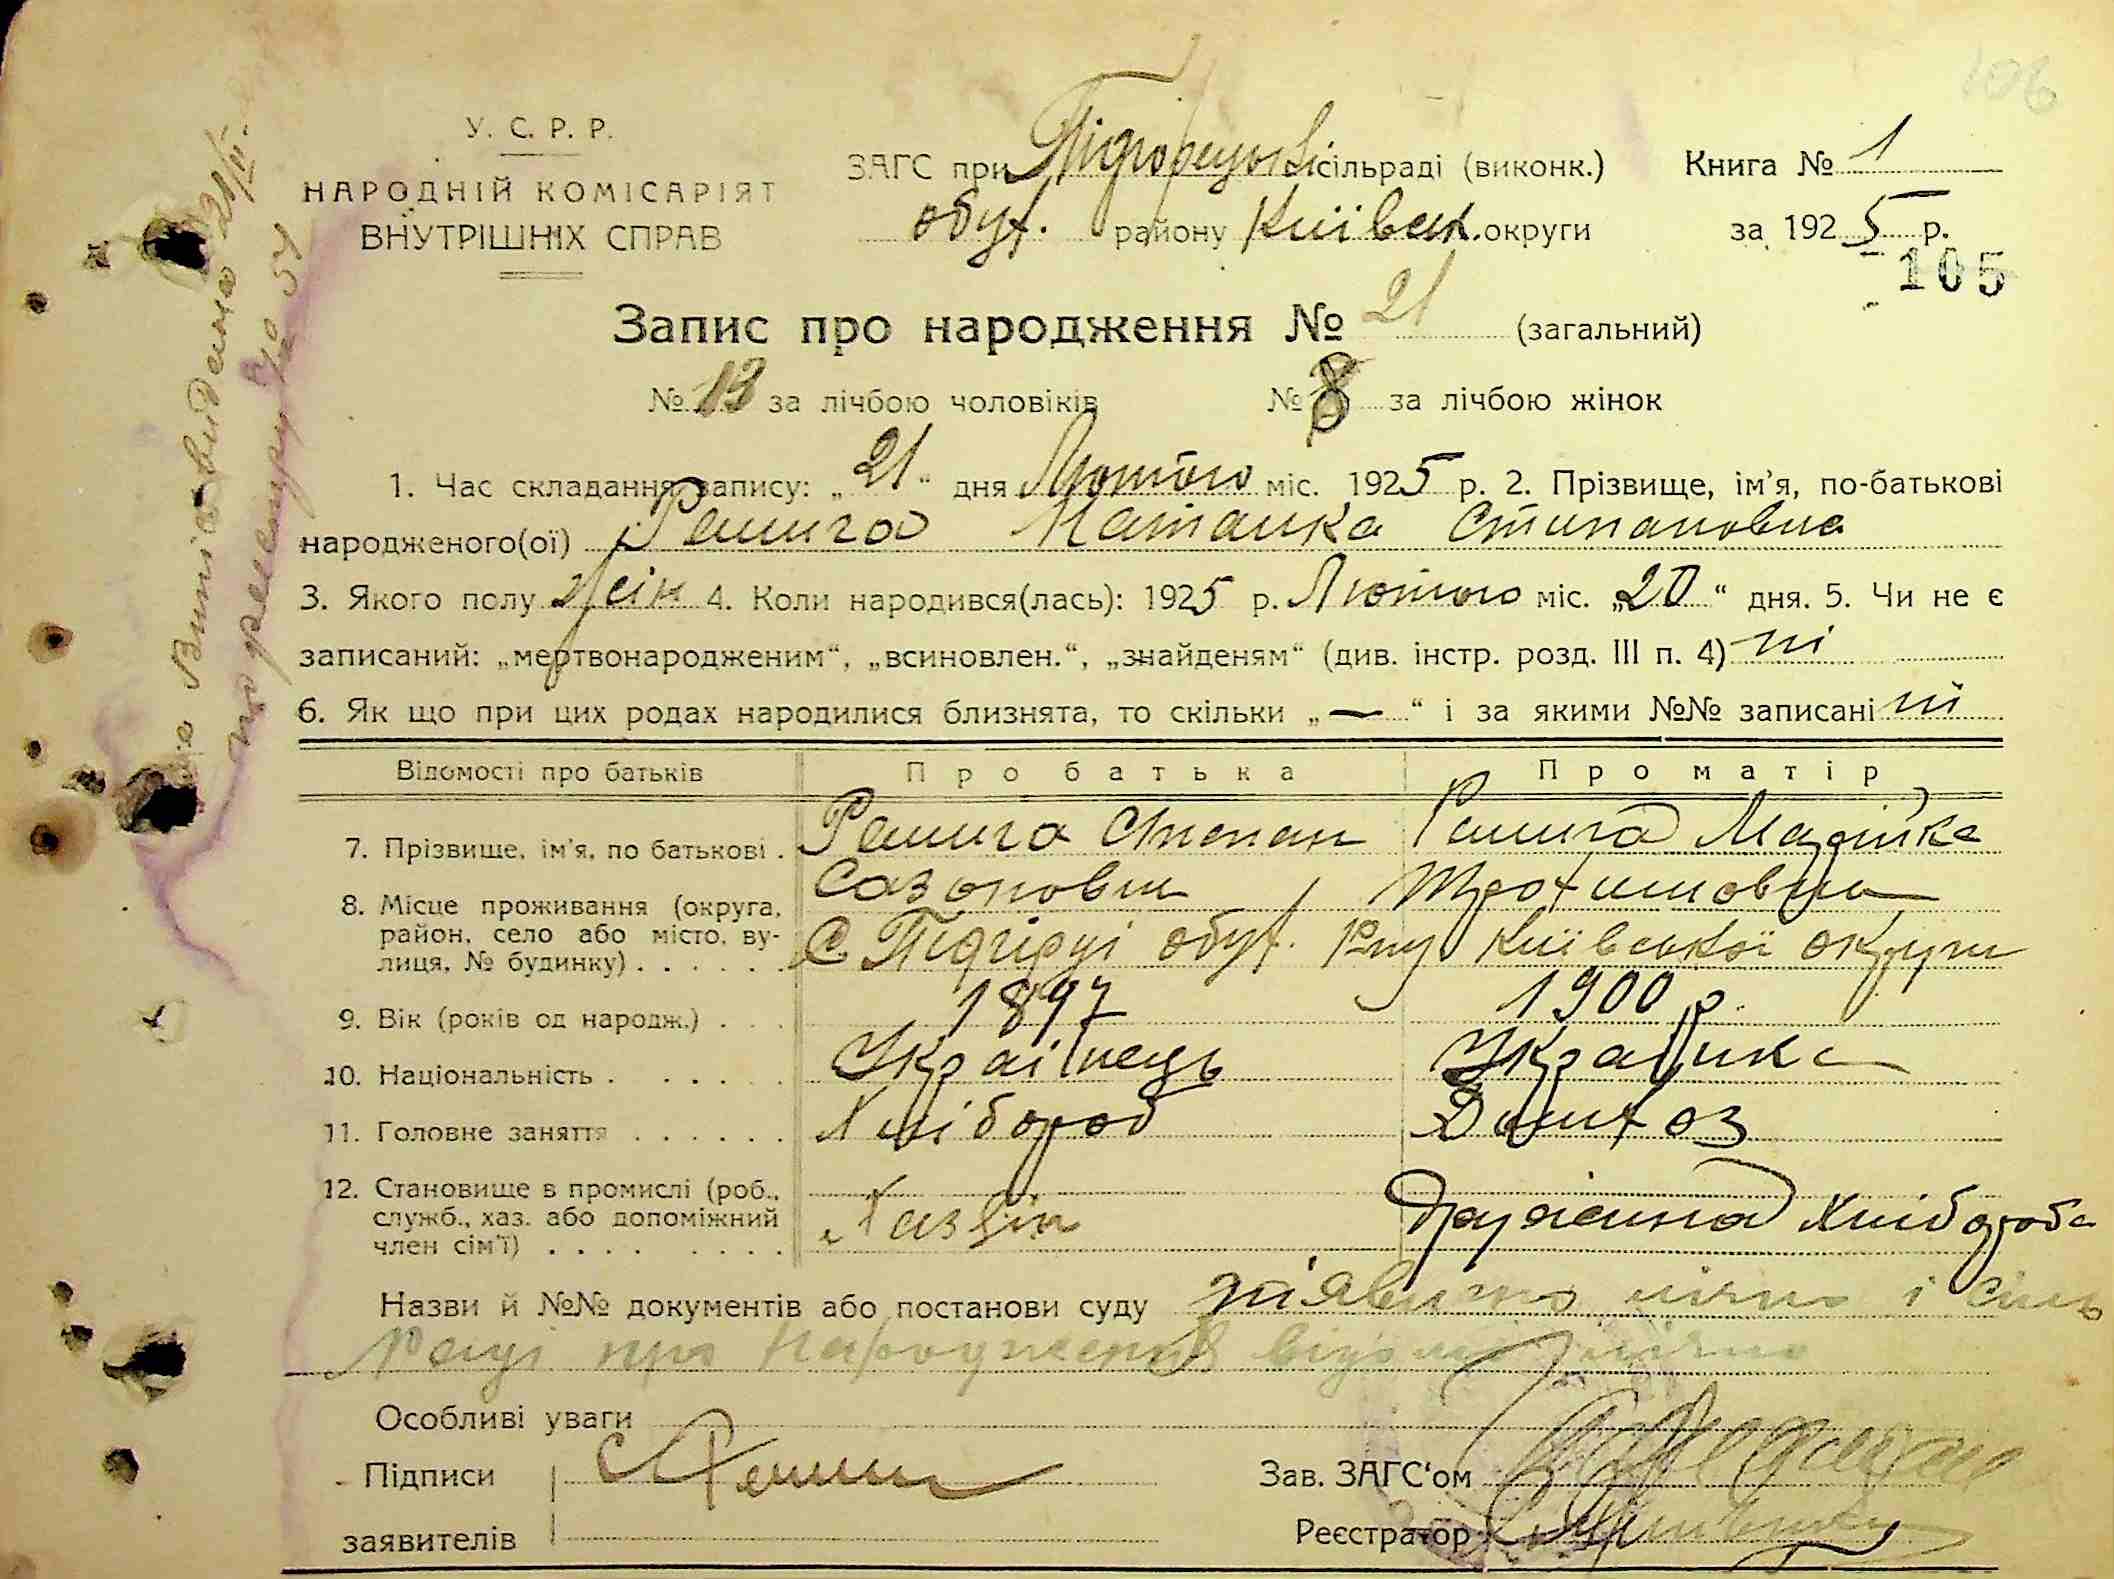 106
У. С. Р. Р.
НАРОДНІЙ КОМІСАРІЯТ
ВНУТРІШНІХ СПРАВ
ЗАГС при Підгорецькій сільраді (виконк.)
обух. району Київськ. округи
Книга № 1
за 1925 р.
105
Запис про народження № 21 (загальний)
№ 13 за лічбою чоловіків № 8 за лічбою жінок
1. Час складання запису: „21“ дня Лютого міс. 1925 р. 2. Прізвище, ім'я, по-батькові
народженого(ої) Ремига Наталка Стипановна
3. Якого полу жін 4. Коли народився(лась): 1925 р. Лютого міс. „20“ дня. 5. Чи не є
записаний: „мертвонародженим“, „всиновлен.“, „знайденям“ (див. інстр. розд. III п. 4) ні
6. Як що при цих родах народилися близнята, то скільки „—“ і за якими №№ записані ні
Відомості про батьків Про батька Про матір
7. Прізвище, ім'я, по батькові . Ремига Степан Ремига Марійка
Сазонович Трохимовна
8. Місце проживання (округа, район, село або місто, вулиця, № будинку) . . . . . . С. Підгірці обух. Р-ну Київської округи
9. Вік (років од народж.) . . . 1897 1900 р.
10. Національність . . . . . . Українець Українка
11. Головне заняття . . . . . . Хлібороб Домхоз
12. Становище в промислі (роб., служб., хаз. або допоміжний член сім'ї) . . . . . . . . Хазяін Дружина Хлібороба
Назви й №№ документів або постанови суду заявлено лічно і сіль
раді про народження відомі лічно
Особливі уваги
Підписи заявителів С Ремига
Зав. ЗАГС'ом
Реєстратор
Витяг видано 21/II
по реєстру № 54